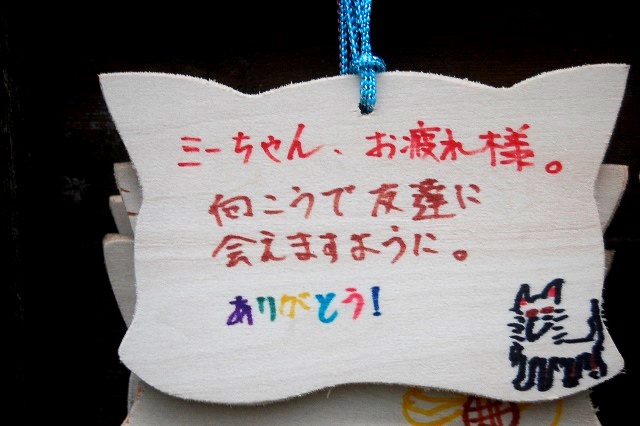 ミーちゃん、お疲れ様。
向こうで友達に
会えますように。
ありがとう!